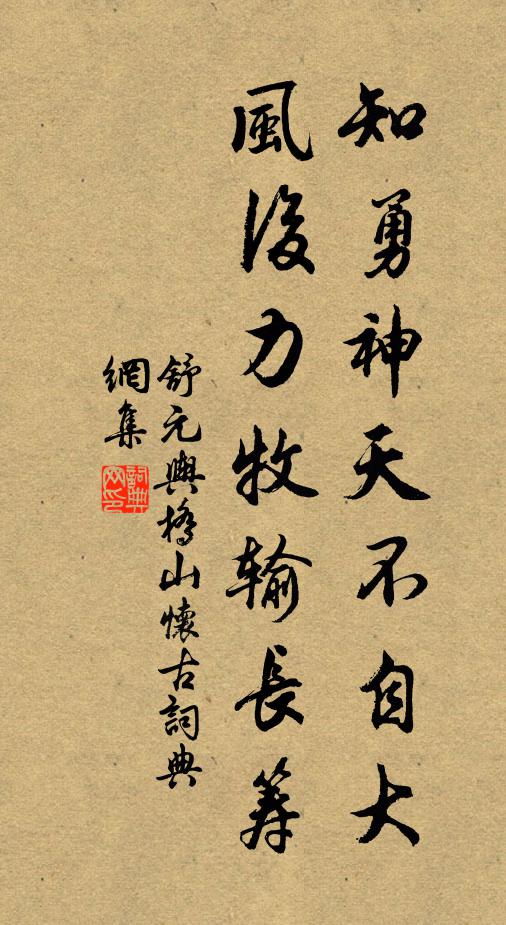 知勇神天不自大
風後力牧輸長籌
舒元輿橋山懷古詞典
網集
詞典
网印